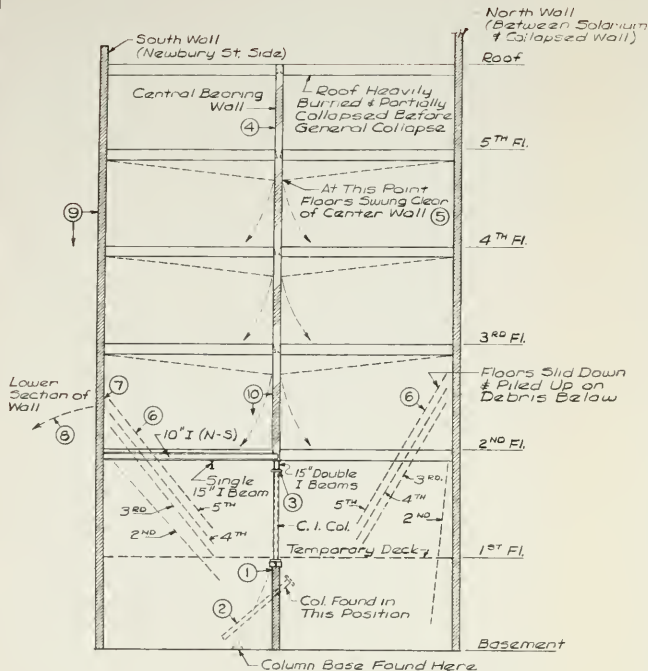 North Wall
(Between Solarium
& Collapsed Wall)
South Wall
(Newbury St. Side)
Roof
Central Bearing
Wall
④
Roof Heavily
Burned & Partially
Collapsed Before
General Collapse
5TH Fl.
At This Point
Floors Swung Clear
of Center Wall ⑤
⑨
4TH Fl.
3RD Fl.
Lower
Section of
Wall
⑦
⑧
⑥
⑩
⑥
Floors Slid Down
& Piled Up on
Debris Below
10" I (N-S)
2ND Fl.
Single
15" I Beam
15" Double
I Beams
③
3RD
5TH
2ND
4TH
C. I. Col.
5TH
4TH
3RD.
2ND
Temporary Deck
1ST Fl.
①
②
Col. Found in
This Position
Basement
Column Base Found Here